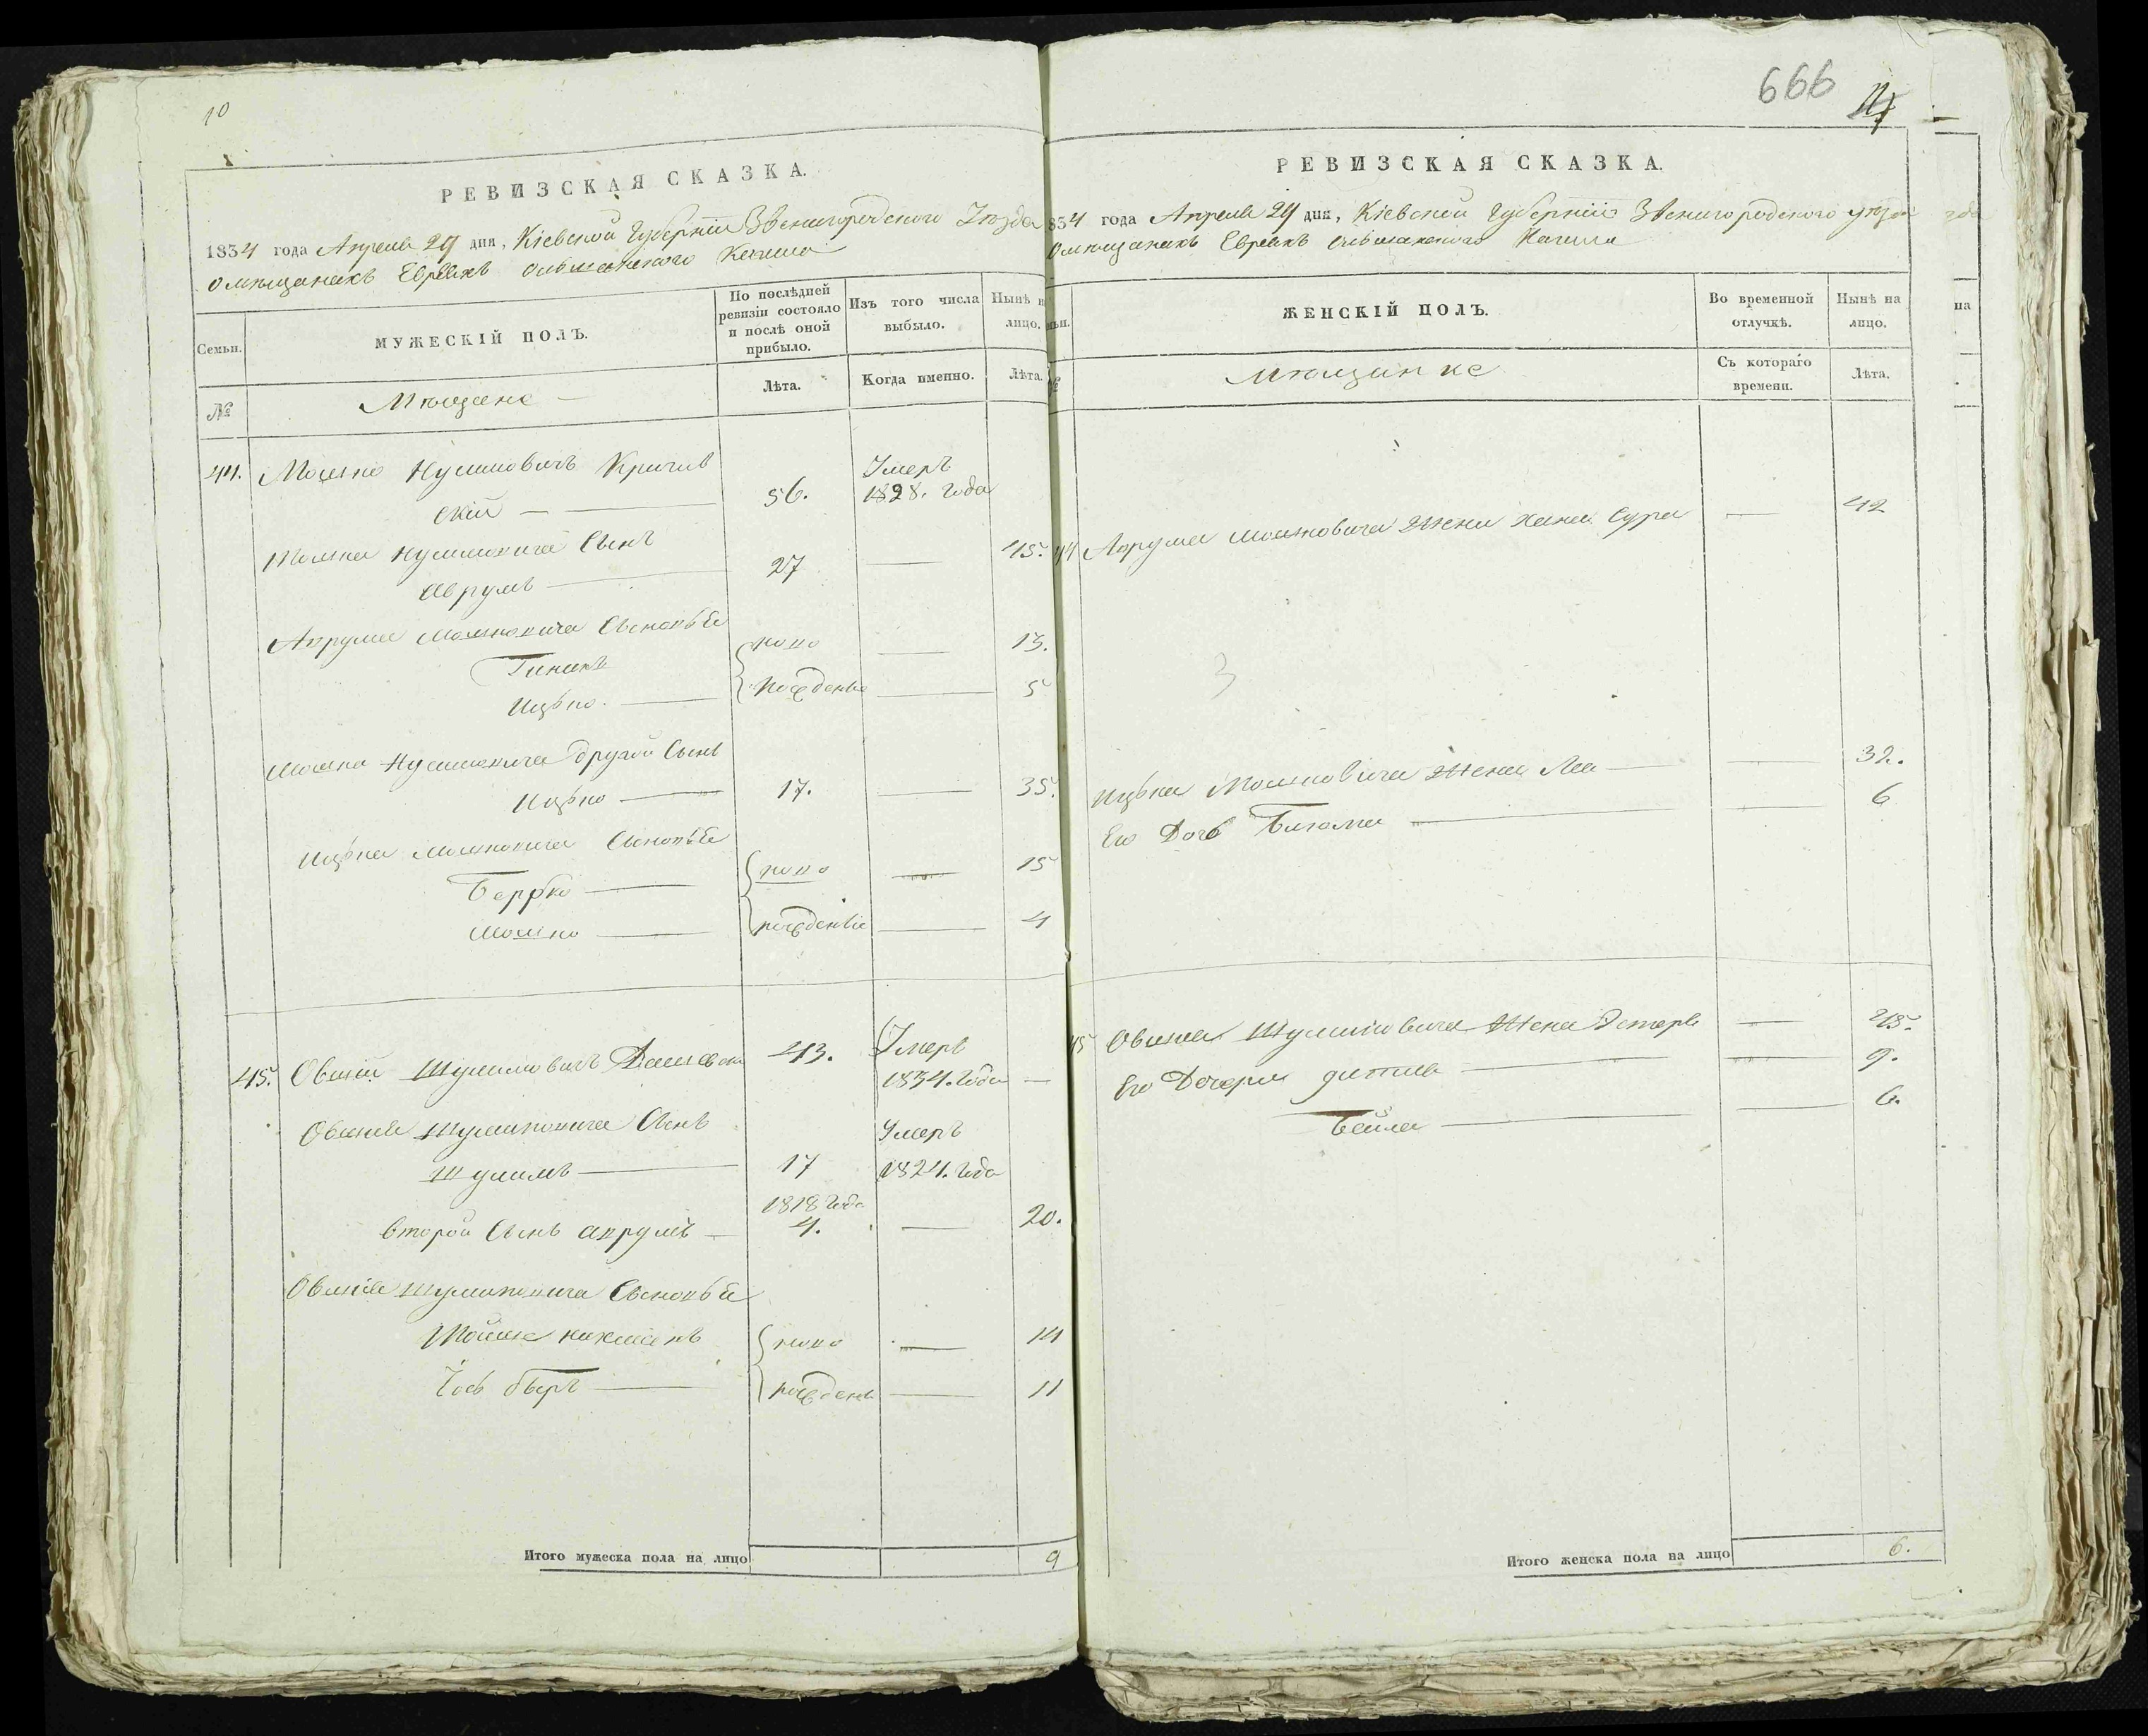 10
РЕВИЗСКАЯ СКАЗКА.
1834 года Апреля 29 дня, Кіевской Губерніи Звенигородского Уезда
омещанахъ Евреахъ Ольшанского Кагала
Семьи.
МУЖЕСКІЙ ПОЛЪ.
По послѣдней ревизіи состояло и послѣ оной прибыло.
Изъ того числа выбыло.
Нынѣ н
лицо.
№
Мещане
Лѣта.
Когда именно.
Лѣта.
44. Мошко Нусимовичъ Кричев
ский 56. Умеръ 1828. года
Мошка Нусимовича Сынъ
Аврумъ 27 45.
Аврума Мошковича Сыновья
ново 13.
Ицько. рожденные 5
Мошка Нусимовича другой Сынъ
Ицько 17. 35.
Ицька Мошковича Сыновья
Берко ново 15
Мошко рожденные 4
45. Овший Шулимовичъ 43. Умеръ
1834. года
Овшия Шулимовича Сынъ Умеръ
Шулимъ 17 1824. года
1818 года
второй Сынъ Аврумъ 4. 20.
Овшия Шулимовича Сыновья
ново 14
рожден 11
Итого мужеска пола на лицо 9
666
РЕВИЗСКАЯ СКАЗКА.
834 года Апреля 29 дня, Кіевской Губерніи Звенигородского уезда
омещанахъ Евреахъ Ольшанского Кагала
ЖЕНСКІЙ ПОЛЪ.
Во временной отлучкѣ.
Нынѣ на лицо.
Мещанке
Съ котораго времени.
Лѣта.
44 Аврума Мошковича Жена Хана Сура 42
3
Ицька Мошковича Жена Лея 32.
Его Дочь 6
45 Овшия Шулимовича Жена Эстеръ 45.
Его Дочери 9.
Бейла 6.
Итого женска пола на лицо 6.
на